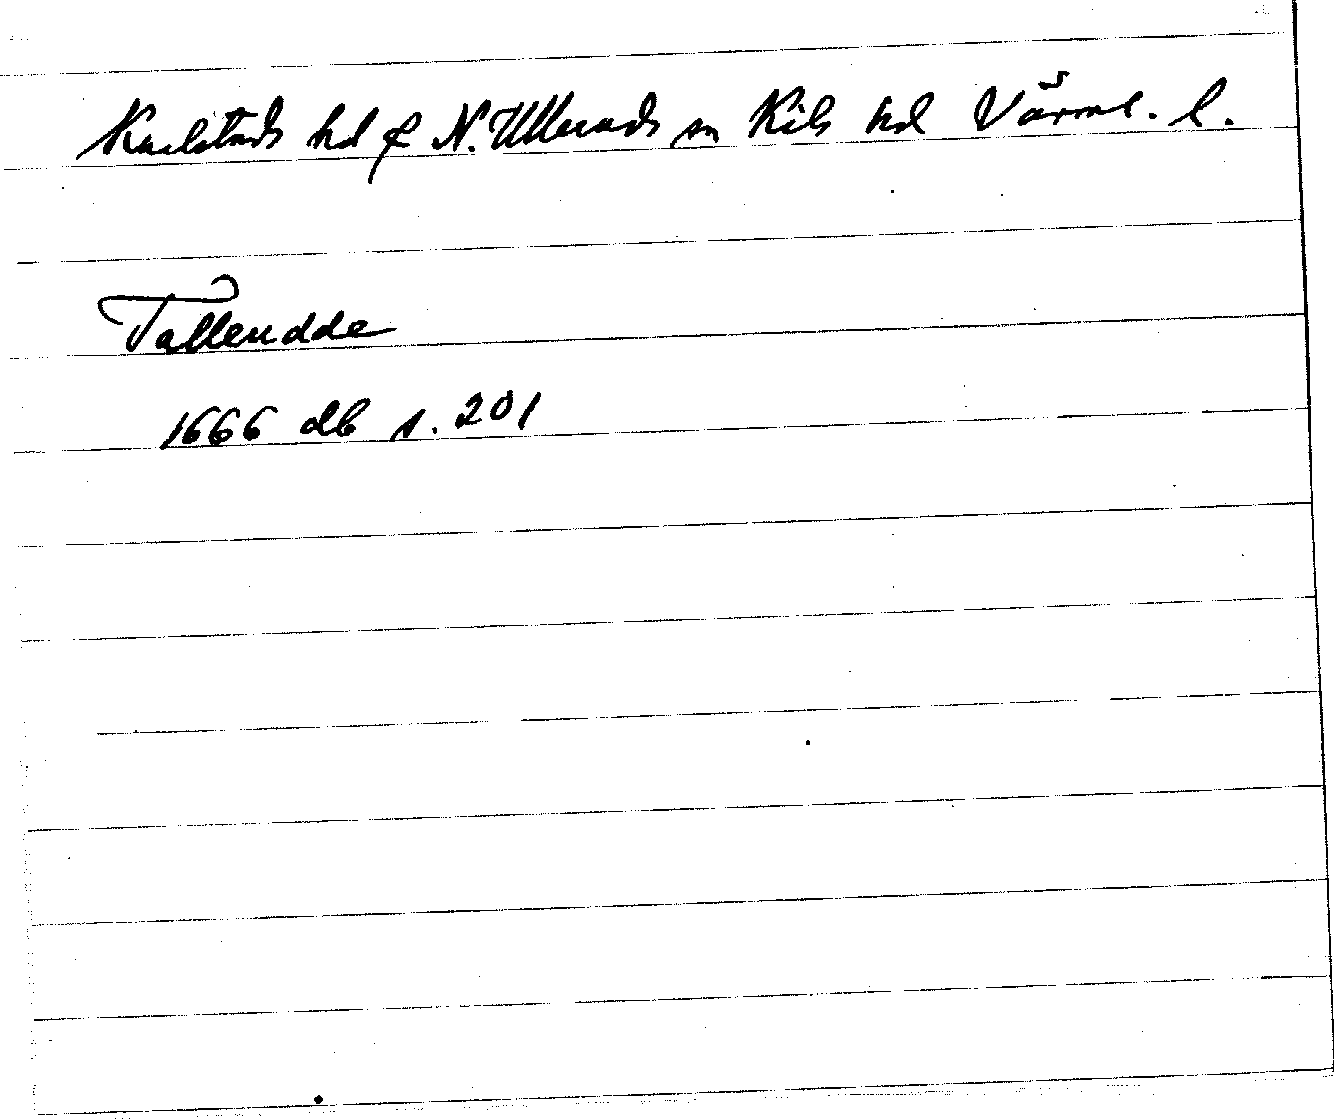 Karlstads hd f N. Ullerads sn Kils hd Värml. l.
Tallendde
1666 db s. 201